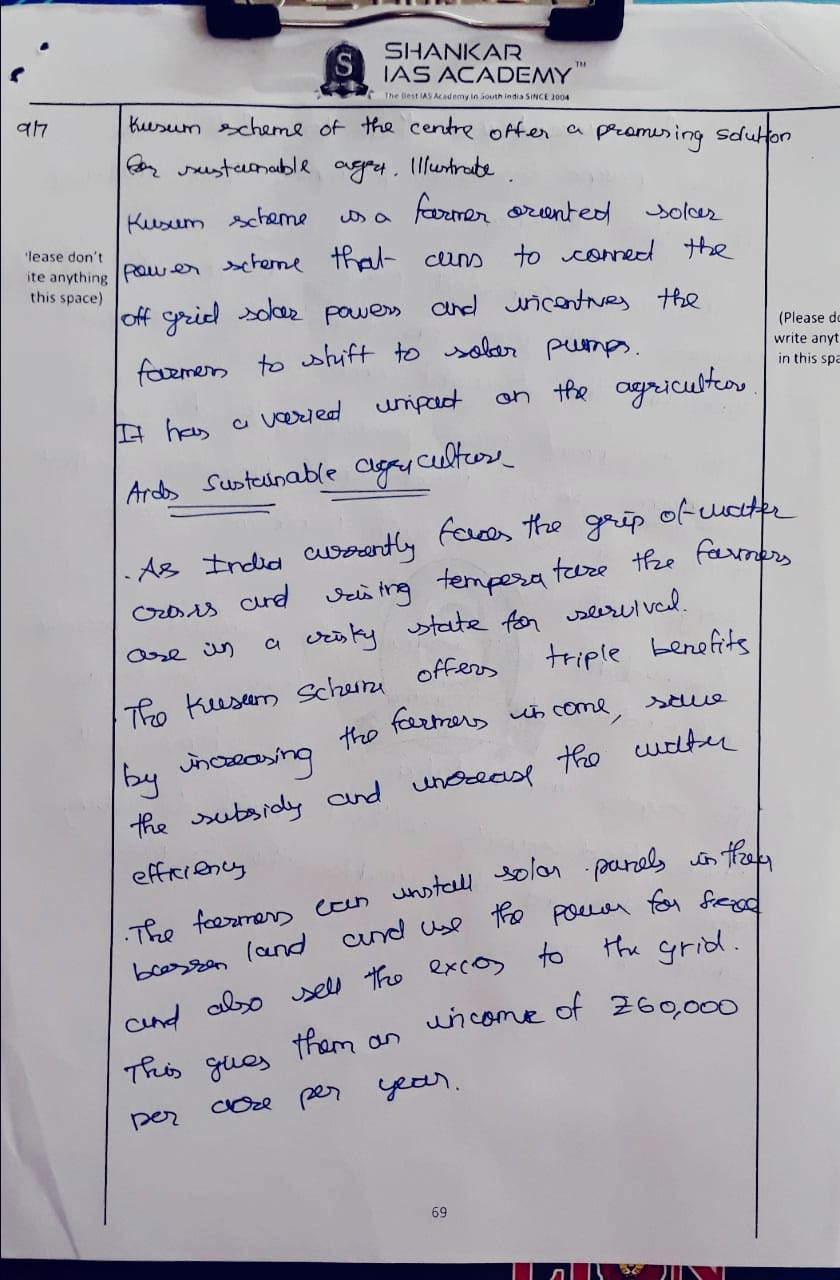 SHANKAR
IAS ACADEMY™
The Best IAS Academy in South India SINCE 2004
9/7
Kusum scheme of the centre offer a promising solution
for sustainable agry. Illustrate.
Kusum scheme is a farmer oriented solar
power scheme that aims to conned the
off grid solar powers and incentives the
farmers to shift to solar pumps.
It has a varied impact on the agriculture.
Aids Sustainable agry culture
'lease don't
ite anything
this space)
(Please do
write anyt
in this spa
. As India currently faces the grip of water
crisis and rising temperature the farmers
are in a risky state for survival.
The Kusum Scheme offers triple benefits
by increasing the farmers income, save
the subsidy and increase the water
efficiency
. The farmers can install solar panels in they
barren land and use the power for
and also sell the excess to the grid.
This gives them an income of ₹60,000
per acre per year.
69